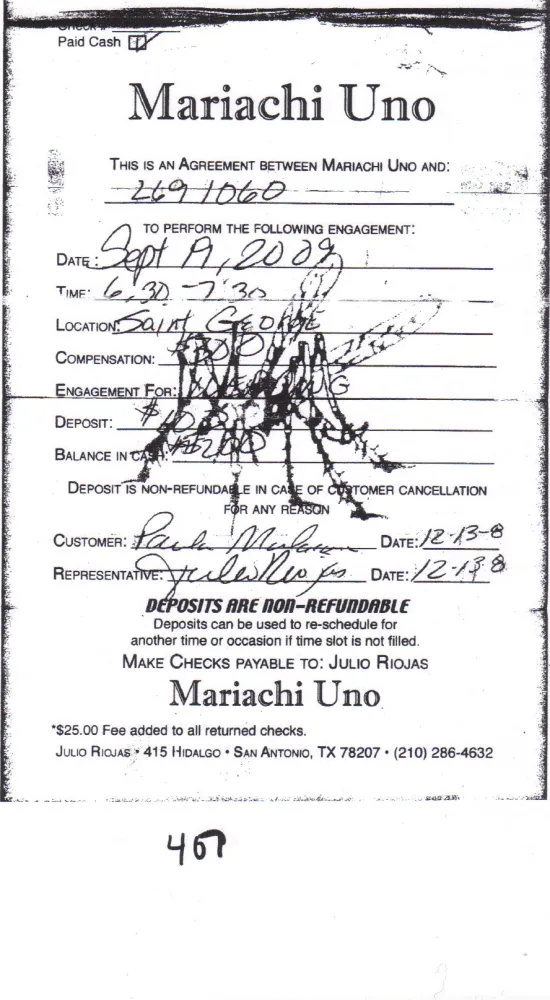 Check #
Paid Cash
Mariachi Uno
THIS IS AN AGREEMENT BETWEEN MARIACHI UNO AND:
269 1060
TO PERFORM THE FOLLOWING ENGAGEMENT:
DATE: Sept 19, 2009
TIME: 6:30 - 7:30
LOCATION: Saint George
COMPENSATION: $300
ENGAGEMENT FOR:
DEPOSIT: $100
BALANCE IN CASH: $200
DEPOSIT IS NON-REFUNDABLE IN CASE OF CUSTOMER CANCELLATION
FOR ANY REASON
CUSTOMER: Paula DATE: 12-13-8
REPRESENTATIVE: Julio Riojas DATE: 12-13-8
DEPOSITS ARE NON-REFUNDABLE
Deposits can be used to re-schedule for
another time or occasion if time slot is not filled.
MAKE CHECKS PAYABLE TO: JULIO RIOJAS
Mariachi Uno
*$25.00 Fee added to all returned checks.
JULIO RIOJAS • 415 HIDALGO • SAN ANTONIO, TX 78207 • (210) 286-4632